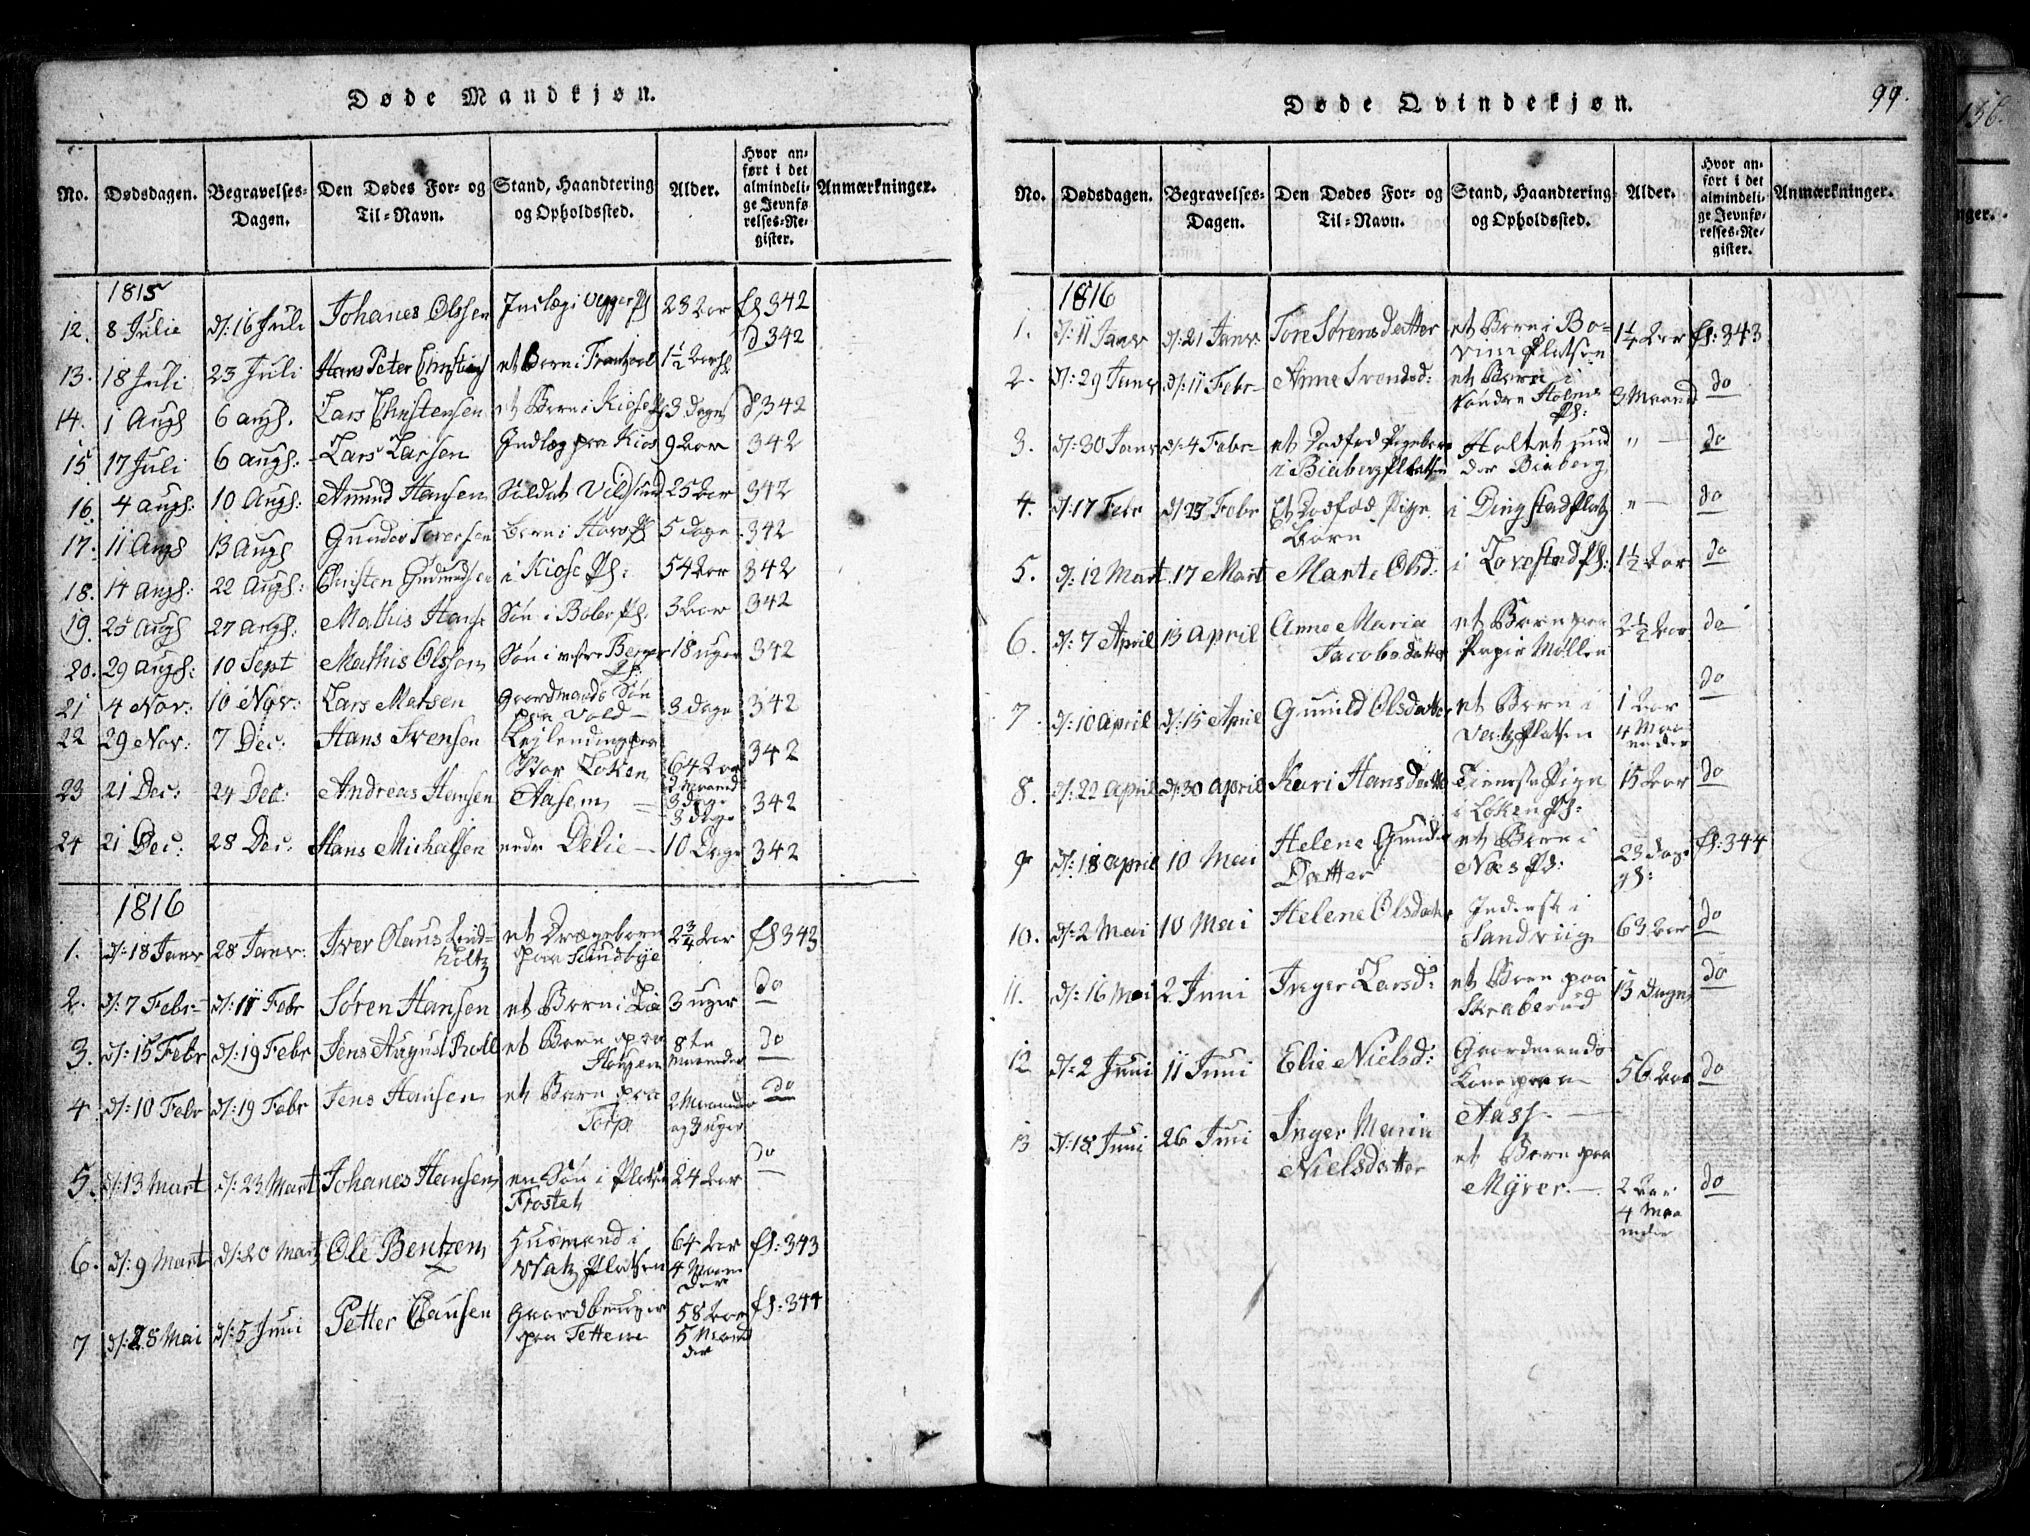 Døde Mandkjøn.
No. Dødsdagen. Begravelses-Dagen. Den Dødes For- og Til-Navn. Stand, Haandtering og Opholdssted. Alder. Hvor anført i det almindelige Jevnførelses-Register. Anmærkninger.
1815
12. 8 Julie d: 16 Juli Johanes Olssen 23 Aar fl 342
13. 18 Juli 23 Juli Hans Peter et Barn i 1½ Aar d 342
14. 1 Augs 6 augs. Lars Christensen et Barn i Kiose 3 dage d 342
15 17 Juli 6 augs: Lars Larsen Indlæg paa Kios 9 Aar 342
16. 4 augs: 10 Augs: Amund Hansen Soldat 25 Aar 342
17. 11 Augs 13 Augs Gunder Torersen Barn i 5 dage 342
18. 14 augs: 22 Augs: Christen Gudmundsen i Kiose Pl: 54 Aar 342
19. 25 Augs 27 args: Mathis Hans Søn i Boler Pl. 3 Aar 342
20. 29 Augs: 10 Sept Mathis Olssøn Søn i Pl: 18 uger 342
21 4 Nov: 10 Nov: Lars Matsen Gaardmands Søn paa Vold 3 dage 342
22 29 Nov: 7 Dec: Hans Svensen Lejlending paa Stor Løken 64 Aar 342
23 21 Dec: 24 Dec: Andreas Hansen Aasem 3 dage 342
24 21 Dec: 28 Dec: Hans Michalsen nedre Delie 10 Dage 342
1816
1. d: 18 Janv 28 Janv: Iver Olaus Lind=holtz et Drægebarn paa Sundbye 2¾ Aar fl 343
2. d: 7 Febr d: 11 Febr Søren Hansen et Barn i Lia 3 uger do
3. d: 15 Febr d: 19 Febr Jens August Roll et Barn paa Haugen 8te Maaneder do
4. d: 10 Febr d: 19 Febr Jens Hansen et Barn paa Torp 2 Maaneder og 3 uger do
5. d: 13 Mart d: 23 Mart Johanes Hansen en Søn i Platsen Frosteh 24 Aar do
6. d: 9 Mart d: 20 Mart Ole Bentzen Husmand i Vatz Platsen 64 Aar 4 Maaneder fl: 343
7 d: 28 Mai d: 5 Juni Petter Clausen Gaardbruger paa Tetten 58 Aar 5 Maaneder fl: 344
Døde Qvindekjøn.
99.
No. Dødsdagen. Begravelses-Dagen. Den Dødes For- og Til-Navn. Stand, Haandtering og Opholdssted. Alder. Hvor anført i det almindelige Jevnførelses-Register. Anmærkninger.
1816
1. d: 11 Janv d: 21 Janv Tore Sørensdatter et Barn i Bovim Platsen 1¼ Aar fl: 343
2. d: 29 Janv d: 11 Febr Anne Svendsd: et Barn i Søndre Holms Pl: 9 Maaned do
3. d: 30 Janv d: 4 Febr et Dødfød Pigebarn i Biaberg Platsen Holtet under Biaberg " do
4. d: 17 Febr d: 23 Febr Et Dødfød Pige Barn i Dingstad Platz " do
5. d: 12 Mart 17 Mart Marte Olsd: i Lovestad Pl: 1½ Aar do
6. d: 7 April 13 April Anne Maria Jacobsdatter et Barn paa Papir Møllen 2½ Aar do
7. d: 10 april d: 15 April Gunild Olsdatter et Barn i Vatz Platsen 1 Aar 4 Maaneder do
8. d: 22 April d: 30 april Kari Hansdatter Tieneste Pige i Løken Pl: 15 Aar do
9 d: 18 april 10 Mai Helene Gunder Datter et Barn i Næs Pl: 23 dage fl: 344
10. d: 2 Mai 10 Mai Helene Olsdatter Inderste i Sandviig 63 Aar do
11. d: 16 Mai 2 Juni Inger Larsd: et Barn paa Skraberud 13 Dage do
12 d: 2 Juni 11 Juni Elie Nielsd: Gaardmands Kone paa Aass. 56 Aar do
13 d: 18 Juni 26 Juni Inger Maria Nielsdatter et Barn paa Myrer. 2 Aar 4 Maaneder do
136.
nger.